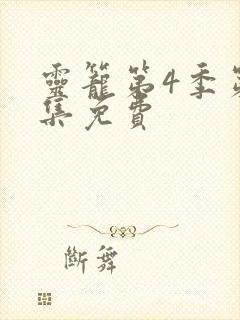 靈籠第4季第
集免費
斷舞